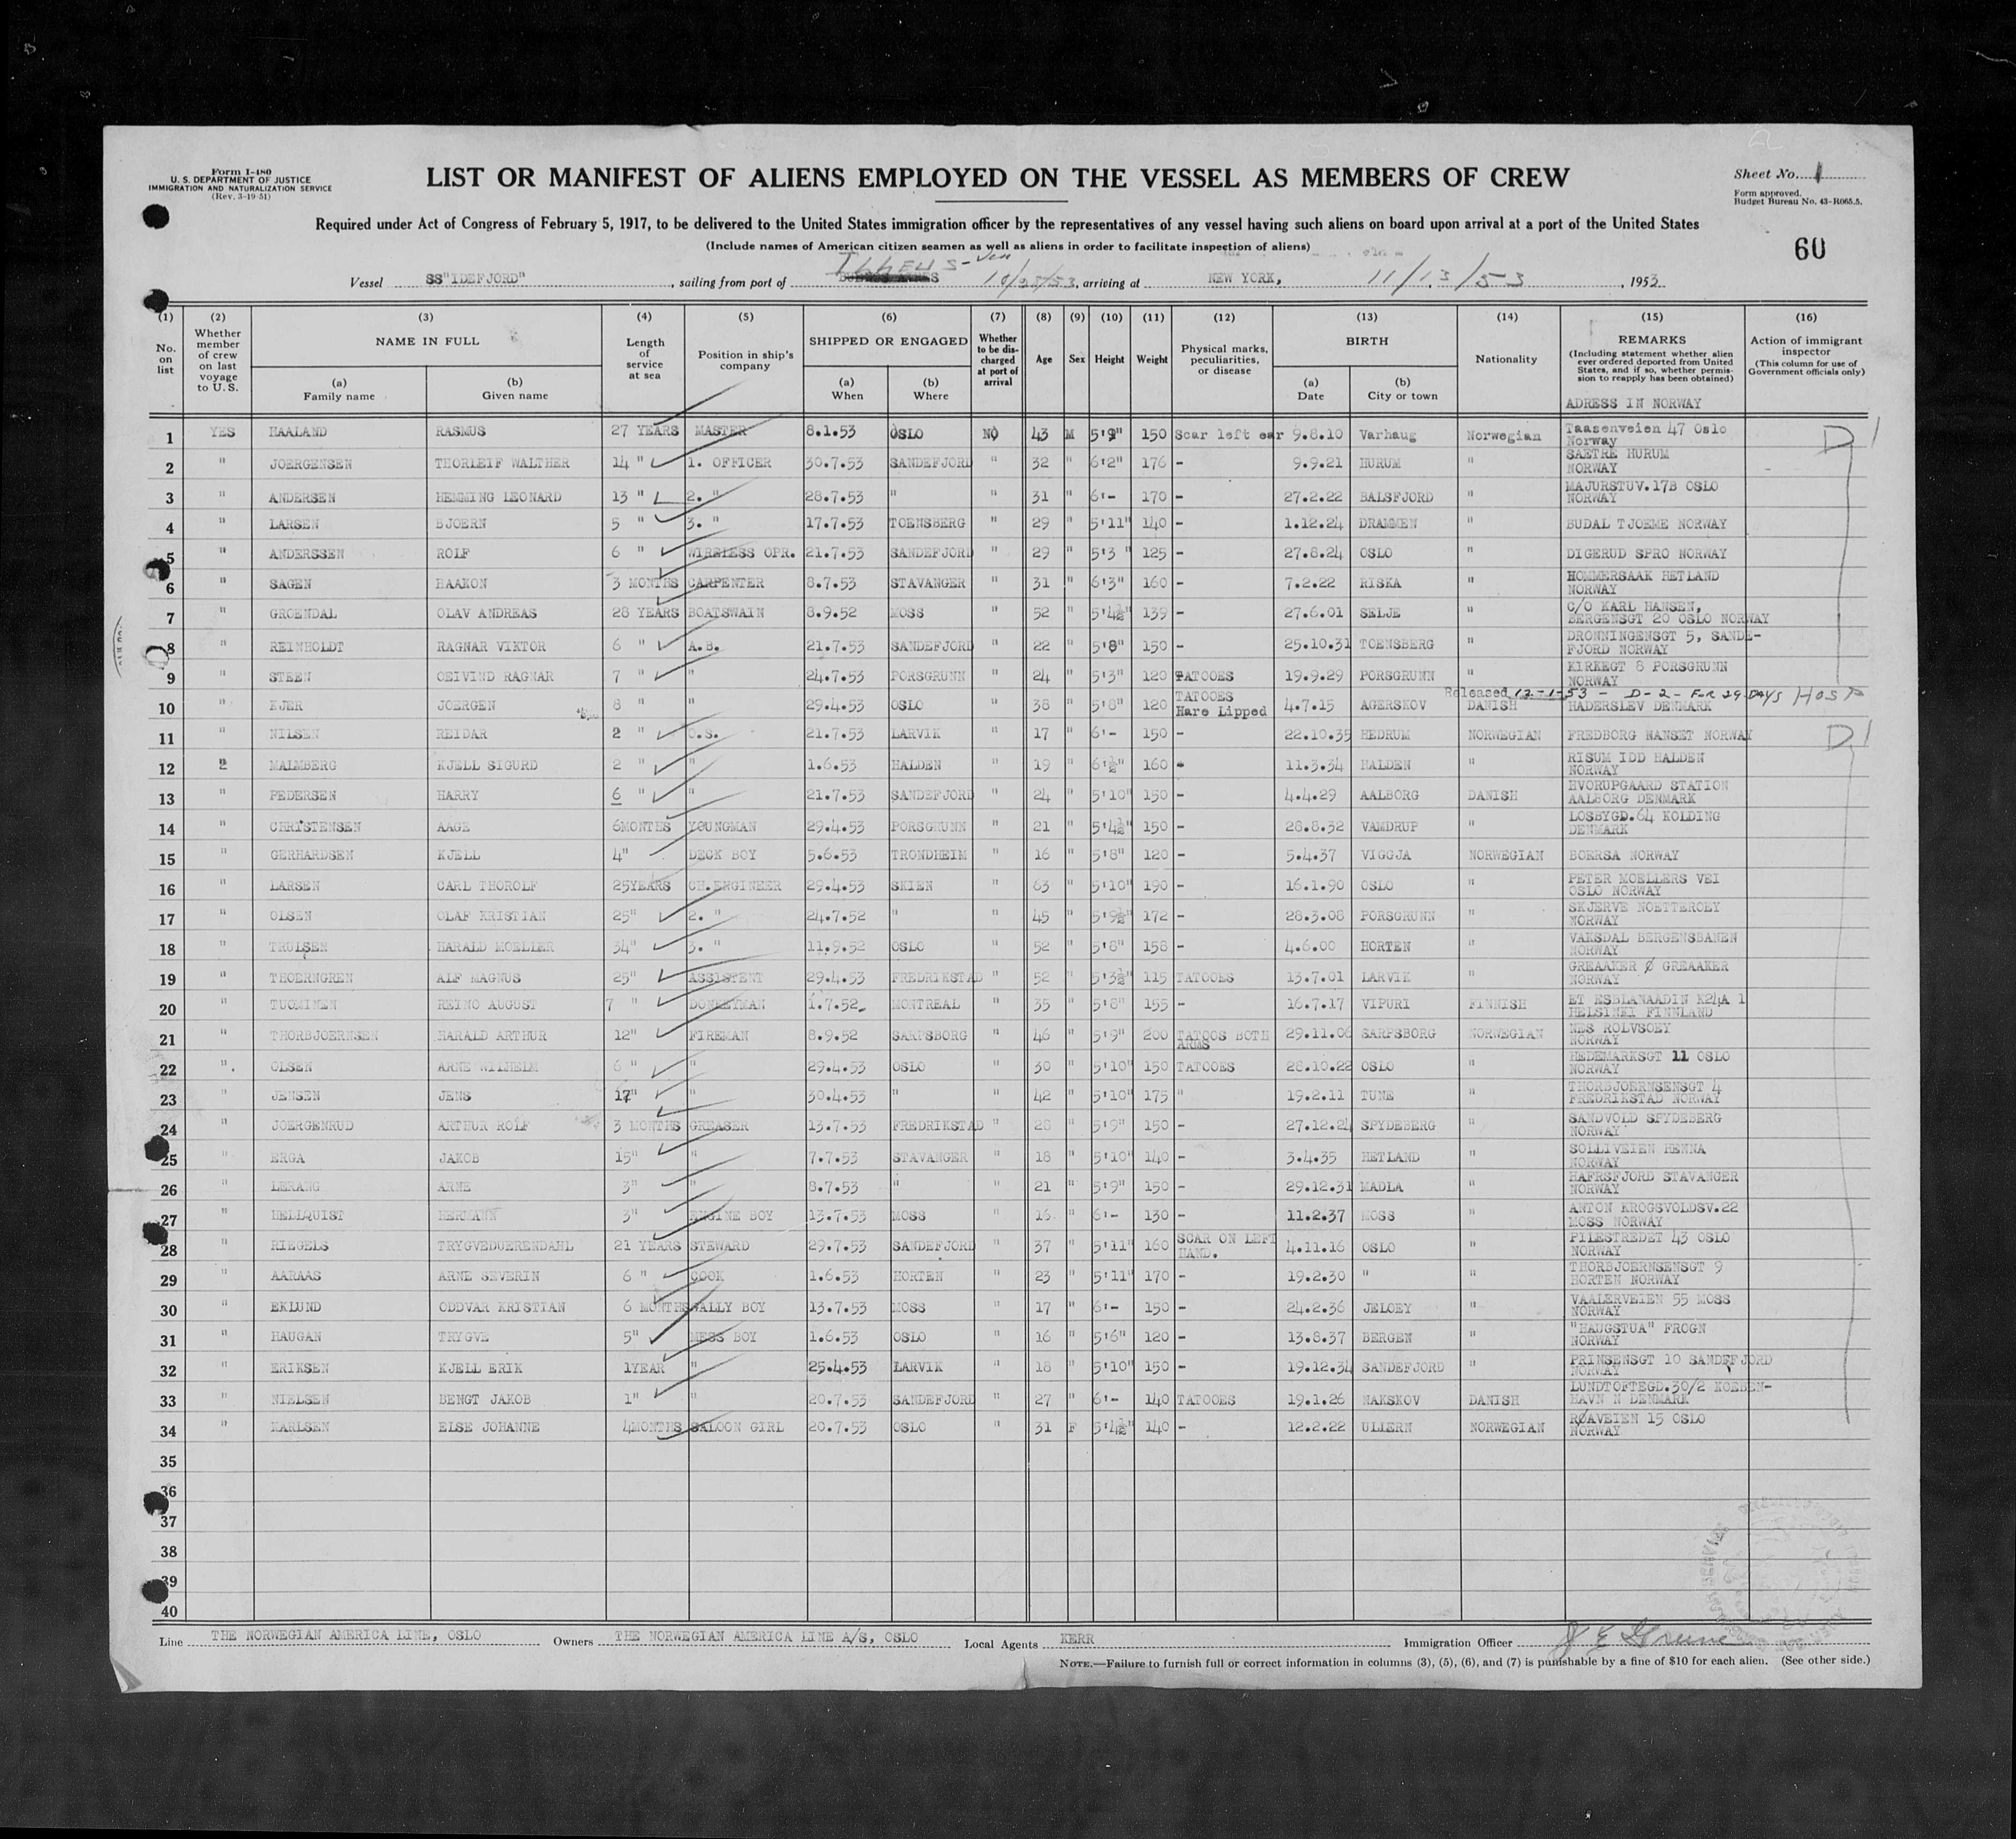 Form I-480
U. S. DEPARTMENT OF JUSTICE
IMMIGRATION AND NATURALIZATION SERVICE
(Rev. 3-19-51)
LIST OR MANIFEST OF ALIENS EMPLOYED ON THE VESSEL AS MEMBERS OF CREW
Sheet No. 1
Form approved.
Budget Bureau No. 43-R065.5.
Required under Act of Congress of February 5, 1917, to be delivered to the United States immigration officer by the representatives of any vessel having such aliens on board upon arrival at a port of the United States
(Include names of American citizen seamen as well as aliens in order to facilitate inspection of aliens)
60
Vessel SS"IDEFJORD", sailing from port of 10/28/53, arriving at NEW YORK, 11/13/53, 1953
(1) (2) (3) (4) (5) (6) (7) (8) (9) (10) (11) (12) (13) (14) (15) (16)
No. on list
Whether member of crew on last voyage to U. S.
NAME IN FULL
(a) Family name
(b) Given name
Length of service at sea
Position in ship's company
SHIPPED OR ENGAGED
(a) When
(b) Where
Whether to be discharged at port of arrival
Age
Sex
Height
Weight
Physical marks, peculiarities, or disease
BIRTH
(a) Date
(b) City or town
Nationality
REMARKS
(Including statement whether alien ever ordered deported from United States, and if so, whether permission to reapply has been obtained)
ADRESS IN NORWAY
Action of immigrant inspector
(This column for use of Government officials only)
1 YES HAALAND RASMUS 27 YEARS MASTER 8.1.53 OSLO NO 43 M 5'9" 150 Scar left ear 9.8.10 Varhaug Norwegian Taasenveien 47 Oslo Norway D1
2 " JOERGENSEN THORLEIF WALTHER 14 " 1. OFFICER 30.7.53 SANDEFJORD " 32 " 6'2" 176 - 9.9.21 HURUM " SAETRE HURUM NORWAY
3 " ANDERSEN HEMMING LEONARD 13 " 2. " 28.7.53 " " 31 " 6'- 170 - 27.2.22 BALSFJORD " MAJURSTUV.17B OSLO NORWAY
4 " LARSEN BJOERN 5 " 3. " 17.7.53 TOENSBERG " 29 " 5'11" 140 - 1.12.24 DRAMMEN " BUDAL TJOEME NORWAY
5 " ANDERSSEN ROLF 6 " WIRELESS OPR. 21.7.53 SANDEFJORD " 29 " 5'3 " 125 - 27.8.24 OSLO " DIGERUD SPRO NORWAY
6 " SAGEN HAAKON 3 MONTHS CARPENTER 8.7.53 STAVANGER " 31 " 6'3" 160 - 7.2.22 RISKA " HOMMERSAAK HETLAND NORWAY
7 " GROENDAL OLAV ANDREAS 28 YEARS BOATSWAIN 8.9.52 MOSS " 52 " 5'4½" 139 - 27.6.01 SELJE " C/O KARL HANSEN, BERGENSGT 20 OSLO NORWAY
8 " REINHOLDT RAGNAR VIKTOR 6 " A.B. 21.7.53 SANDEFJORD " 22 " 5'8" 150 - 25.10.31 TOENSBERG " DRONNINGENSGT 5, SANDE-FJORD NORWAY
9 " STEEN OEIVIND RAGNAR 7 " " 24.7.53 PORSGRUNN " 24 " 5'3" 120 TATOOES 19.9.29 PORSGRUNN " KIRKEGT 8 PORSGRUNN NORWAY
Released 12-1-53 - D-2- FOR 29 DAYS HOSP
10 " KJER JOERGEN 8 " " 29.4.53 OSLO " 38 " 5'8" 120 TATOOES Hare Lipped 4.7.15 AGERSKOV DANISH HADERSLEV DENMARK
11 " NILSEN REIDAR 2 " O.S. 21.7.53 LARVIK " 17 " 6'- 150 - 22.10.35 HEDRUM NORWEGIAN FREDBORG NANSET NORWAY D1
12 " MALMBERG KJELL SIGURD 2 " " 1.6.53 HALDEN " 19 " 6'½" 160 - 11.3.34 HALDEN " RISUM IDD HALDEN NORWAY
13 " PEDERSEN HARRY 6 " " 21.7.53 SANDEFJORD " 24 " 5'10" 150 - 4.4.29 AALBORG DANISH HVORUPGAARD STATION AALBORG DENMARK
14 " CHRISTENSEN AAGE 6MONTHS YOUNGMAN 29.4.53 PORSGRUNN " 21 " 5'4½" 150 - 28.8.32 VAMDRUP " LOSBYGD.64 KOLDING DENMARK
15 " GERHARDSEN KJELL 4" DECK BOY 5.6.53 TRONDHEIM " 16 " 5'8" 120 - 5.4.37 VIGGJA NORWEGIAN BOERSA NORWAY
16 " LARSEN CARL THOROLF 25YEARS CH.ENGINEER 29.4.53 SKIEN " 63 " 5'10" 190 - 16.1.90 OSLO " PETER MOELLERS VEI OSLO NORWAY
17 " OLSEN OLAF KRISTIAN 25" 2. " 24.7.52 " " 45 " 5'9½" 172 - 28.3.08 PORSGRUNN " SKJERVE NOETTEROEY NORWAY
18 " TRULSEN HARALD MOELLER 34" 3. " 11.9.52 OSLO " 52 " 5'8" 158 - 4.6.00 HORTEN " VAKSDAL BERGENSBANEN NORWAY
19 " THOERNGREN ALF MAGNUS 25" ASSISTENT 29.4.53 FREDRIKSTAD " 52 " 5'3½" 115 TATOOES 13.7.01 LARVIK " GREAAKER Ø GREAAKER NORWAY
20 " TUOMINEN REINO AUGUST 7 " DONKEYMAN 1.7.52 MONTREAL " 35 " 5'8" 155 - 16.7.17 VIPURI FINNISH ET ESBLANAADIN K24A 1 HELSINKI FINNLAND
21 " THORBJOERNSEN HARALD ARTHUR 12" FIREMAN 8.9.52 SARPSBORG " 46 " 5'9" 200 TATOOS BOTH ARMS 29.11.06 SARPSBORG NORWEGIAN NES ROLVSOEY NORWAY
22 " OLSEN ARNE WILHELM 6 " " 29.4.53 OSLO " 30 " 5'10" 150 TATOOES 28.10.22 OSLO " HEDEMARKSGT 11 OSLO NORWAY
23 " JENSEN JENS 17" " 30.4.53 " " 42 " 5'10" 175 " 19.2.11 TUNE " THORBJOERNSENSGT 4 FREDRIKSTAD NORWAY
24 " JOERGENRUD ARTHUR ROLF 3 MONTHS GREASER 13.7.53 FREDRIKSTAD " 28 " 5'9" 150 - 27.12.24 SPYDEBERG " SANDVOLD SPYDEBERG NORWAY
25 " ERGA JAKOB 15" " 7.7.53 STAVANGER " 18 " 5'10" 140 - 3.4.35 HETLAND " SOLLIVEIEN HENNA NORWAY
26 " LERANG ARNE 3" " 8.7.53 " " 21 " 5'9" 150 - 29.12.31 MADLA " HAFRSFJORD STAVANGER NORWAY
27 " HELLQUIST HERMANN 3" ENGINE BOY 13.7.53 MOSS " 16 " 6'- 130 - 11.2.37 MOSS " ANTON KROGSVOLDSV.22 MOSS NORWAY
28 " RIEGELS TRYGVEDUERENDAHL 21 YEARS STEWARD 29.7.53 SANDEFJORD " 37 " 5'11" 160 SCAR ON LEFT HAND. 4.11.16 OSLO " PILESTREDET 43 OSLO NORWAY
29 " AARAAS ARNE SEVERIN 6 " COOK 1.6.53 HORTEN " 23 " 5'11" 170 - 19.2.30 " " THORBJOERNSENSGT 9 HORTEN NORWAY
30 " EKLUND ODDVAR KRISTIAN 6 MONTHS GALLY BOY 13.7.53 MOSS " 17 " 6'- 150 - 24.2.36 JELOEY " VAALERVEIEN 55 MOSS NORWAY
31 " HAUGAN TRYGVE 5" MESS BOY 1.6.53 OSLO " 16 " 5'6" 120 - 13.8.37 BERGEN " "HAUGSTUA" FROGN NORWAY
32 " ERIKSEN KJELL ERIK 1YEAR " 25.4.53 LARVIK " 18 " 5'10" 150 - 19.12.34 SANDEFJORD " PRINSENSGT 10 SANDEFJORD NORWAY
33 " NIELSEN BENGT JAKOB 1" " 20.7.53 SANDEFJORD " 27 " 6'- 140 TATOOES 19.1.26 NAKSKOV DANISH LUNDTOFTEGD.30/2 KOEBEN-HAVN N DENMARK
34 " KARLSEN ELSE JOHANNE 4MONTHS SALOON GIRL 20.7.53 OSLO " 31 F 5'4½" 140 - 12.2.22 ULLERN NORWEGIAN RØAVEIEN 15 OSLO NORWAY
35
36
37
38
39
40
Line THE NORWEGIAN AMERICA LINE, OSLO Owners THE NORWEGIAN AMERICA LINE A/S, OSLO Local Agents KERR Immigration Officer J E Greene
NOTE.—Failure to furnish full or correct information in columns (3), (5), (6), and (7) is punishable by a fine of $10 for each alien. (See other side.)